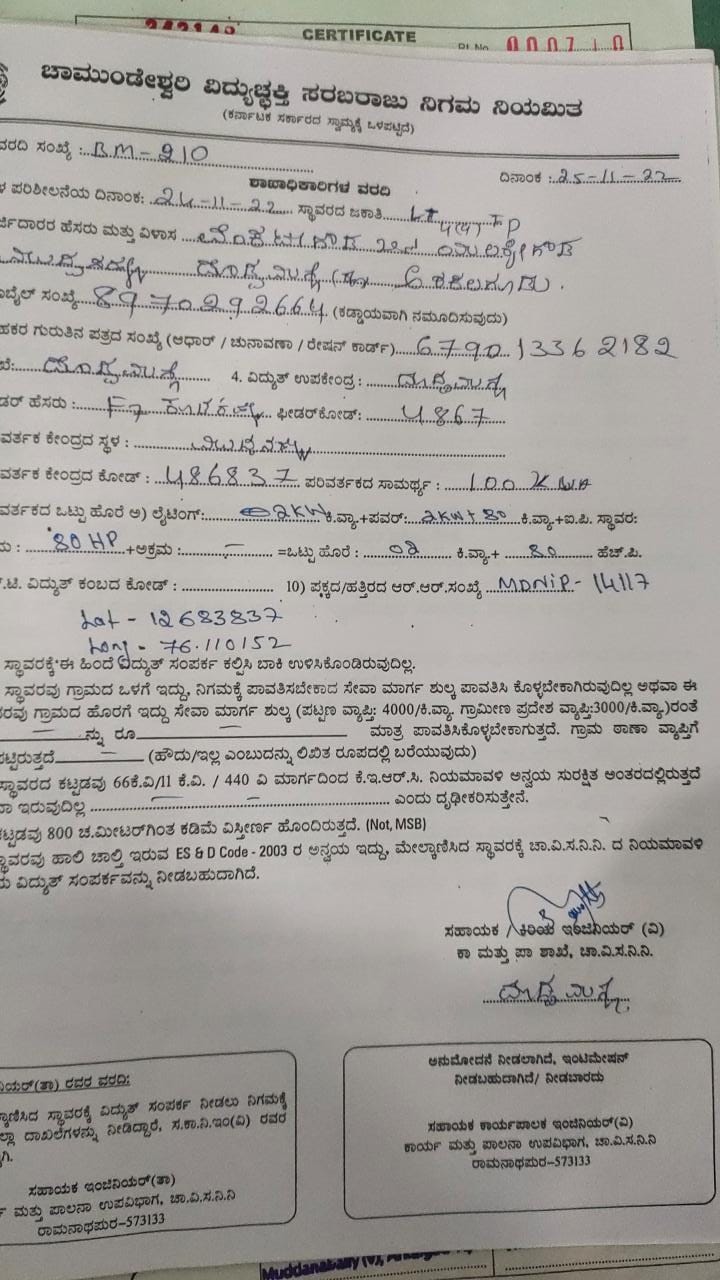 242148
CERTIFICATE
Pl.No. 000710
ಚಾಮುಂಡೇಶ್ವರಿ ವಿದ್ಯುಚ್ಛಕ್ತಿ ಸರಬರಾಜು ನಿಗಮ ನಿಯಮಿತ
(ಕರ್ನಾಟಕ ಸರ್ಕಾರದ ಸ್ವಾಮ್ಯಕ್ಕೆ ಒಳಪಟ್ಟಿದೆ)
ವರದಿ ಸಂಖ್ಯೆ : BM-910
ದಿನಾಂಕ : 25-11-22
ಶಾಖಾಧಿಕಾರಿಗಳ ವರದಿ
ಳ ಪರಿಶೀಲನೆಯ ದಿನಾಂಕ: 24-11-22 ಸ್ಥಾವರದ ಜಕಾತಿ LT 4(4) IP
ರ್ಜಿದಾರರ ಹೆಸರು ಮತ್ತು ವಿಳಾಸ
ಬೈಲ್ ಸಂಖ್ಯೆ 8970292664 (ಕಡ್ಡಾಯವಾಗಿ ನಮೂದಿಸುವುದು)
ಹಕರ ಗುರುತಿನ ಪತ್ರದ ಸಂಖ್ಯೆ (ಆಧಾರ್ / ಚುನಾವಣಾ / ರೇಷನ್ ಕಾರ್ಡ್) 679013362182
4. ವಿದ್ಯುತ್ ಉಪಕೇಂದ್ರ :
ಡರ್ ಹೆಸರು : F7 ಫೀಡರ್‌ಕೋಡ್: 4867
ವರ್ತಕ ಕೇಂದ್ರದ ಸ್ಥಳ :
ವರ್ತಕ ಕೇಂದ್ರದ ಕೋಡ್ : 486837 ಪರಿವರ್ತಕದ ಸಾಮರ್ಥ್ಯ : 100 KVA
ವರ್ತಕದ ಒಟ್ಟು ಹೊರೆ ಅ) ಲೈಟಿಂಗ್: 2KW ಕಿ.ವ್ಯಾ.+ಪವರ್: 2KW+80 ಕಿ.ವ್ಯಾ+ಐ.ಪಿ. ಸ್ಥಾವರ:
ಯ : 80 HP +ಅಕ್ರಮ: – =ಒಟ್ಟು ಹೊರೆ : 02 ಕಿ.ವ್ಯಾ+ 80 ಹೆಚ್.ಪಿ.
.ಟಿ. ವಿದ್ಯುತ್ ಕಂಬದ ಕೋಡ್ : 10) ಪಕ್ಕದ/ಹತ್ತಿರದ ಆರ್.ಆರ್.ಸಂಖ್ಯೆ MDNIP-14117
Lat - 12683837
Long - 76.110152
ಸ್ಥಾವರಕ್ಕೆ ಈ ಹಿಂದೆ ವಿದ್ಯುತ್ ಸಂಪರ್ಕ ಕಲ್ಪಿಸಿ ಬಾಕಿ ಉಳಿಸಿಕೊಂಡಿರುವುದಿಲ್ಲ.
ಸ್ಥಾವರವು ಗ್ರಾಮದ ಒಳಗೆ ಇದ್ದು, ನಿಗಮಕ್ಕೆ ಪಾವತಿಸಬೇಕಾದ ಸೇವಾ ಮಾರ್ಗ ಶುಲ್ಕ ಪಾವತಿಸಿ ಕೊಳ್ಳಬೇಕಾಗಿರುವುದಿಲ್ಲ ಅಥವಾ ಈ
ರವು ಗ್ರಾಮದ ಹೊರಗೆ ಇದ್ದು ಸೇವಾ ಮಾರ್ಗ ಶುಲ್ಕ (ಪಟ್ಟಣ ವ್ಯಾಪ್ತಿ: 4000/ಕಿ.ವ್ಯಾ. ಗ್ರಾಮೀಣ ಪ್ರದೇಶ ವ್ಯಾಪ್ತಿ:3000/ಕಿ.ವ್ಯಾ.)ರಂತೆ
ನ್ನು ರೂ ಮಾತ್ರ ಪಾವತಿಸಿಕೊಳ್ಳಬೇಕಾಗುತ್ತದೆ. ಗ್ರಾಮ ಠಾಣಾ ವ್ಯಾಪ್ತಿಗೆ
ಪಟ್ಟಿರುತ್ತದೆ (ಹೌದು/ಇಲ್ಲ ಎಂಬುದನ್ನು ಲಿಖಿತ ರೂಪದಲ್ಲಿ ಬರೆಯುವುದು)
ಸ್ಥಾವರದ ಕಟ್ಟಡವು 66ಕೆ.ವಿ/11 ಕೆ.ವಿ. / 440 ವಿ ಮಾರ್ಗದಿಂದ ಕೆ.ಇ.ಆರ್.ಸಿ. ನಿಯಮಾವಳಿ ಅನ್ವಯ ಸುರಕ್ಷಿತ ಅಂತರದಲ್ಲಿರುತ್ತದೆ
ವಾ ಇರುವುದಿಲ್ಲ ಎಂದು ದೃಢೀಕರಿಸುತ್ತೇನೆ.
ಕಟ್ಟಡವು 800 ಚ.ಮೀಟರ್‌ಗಿಂತ ಕಡಿಮೆ ವಿಸ್ತೀರ್ಣ ಹೊಂದಿರುತ್ತದೆ. (Not, MSB)
ಥಾವರವು ಹಾಲಿ ಚಾಲ್ತಿ ಇರುವ ES & D Code - 2003 ರ ಅನ್ವಯ ಇದ್ದು, ಮೇಲ್ಕಾಣಿಸಿದ ಸ್ಥಾವರಕ್ಕೆ ಚಾ.ವಿ.ಸ.ನಿ.ನಿ. ದ ನಿಯಮಾವಳಿ
ಯ ವಿದ್ಯುತ್ ಸಂಪರ್ಕವನ್ನು ನೀಡಬಹುದಾಗಿದೆ.
ಸಹಾಯಕ / ಕಿರಿಯ ಇಂಜಿನಿಯರ್ (ವಿ)
ಕಾ ಮತ್ತು ಪಾ ಶಾಖೆ, ಚಾ.ವಿ.ಸ.ನಿ.ನಿ.
ನಿಯರ್(ತಾ) ರವರ ವರದಿ:
್ಕಾಣಿಸಿದ ಸ್ಥಾವರಕ್ಕೆ ವಿದ್ಯುತ್ ಸಂಪರ್ಕ ನೀಡಲು ನಿಗಮಕ್ಕೆ
ಲ್ಲಾ ದಾಖಲೆಗಳನ್ನು ನೀಡಿದ್ದಾರೆ, ಸ.ಕಾ.ನಿ.ಇಂ(ವಿ) ರವರ
ಗಿ.
ಸಹಾಯಕ ಇಂಜಿನಿಯರ್(ತಾ)
ಮತ್ತು ಪಾಲನಾ ಉಪವಿಭಾಗ, ಚಾ.ವಿ.ಸ.ನಿ.ನಿ
ರಾಮನಾಥಪುರ-573133
ಅನುಮೋದನೆ ನೀಡಲಾಗಿದೆ, ಇಂಟಿಮೇಷನ್
ನೀಡಬಹುದಾಗಿದೆ/ ನೀಡಬಾರದು
ಸಹಾಯಕ ಕಾರ್ಯಪಾಲಕ ಇಂಜಿನಿಯರ್(ವಿ)
ಕಾರ್ಯ ಮತ್ತು ಪಾಲನಾ ಉಪವಿಭಾಗ, ಚಾ.ವಿ.ಸ.ನಿ.ನಿ
ರಾಮನಾಥಪುರ-573133